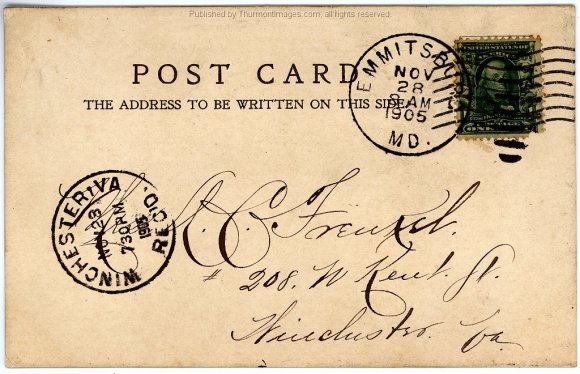 Published by Thurmontimages.com, all rights reserved.
POST CARD
THE ADDRESS TO BE WRITTEN ON THIS SIDE
EMMITSBURG
NOV
28
8 AM
1905
MD.
UNITED STATES OF
ONE
WINCHESTER, VA.
NOV 28
730 PM
1905
REC'D.
C. Frenzel.
# 208. W Kent. St.
Winchester. Va.